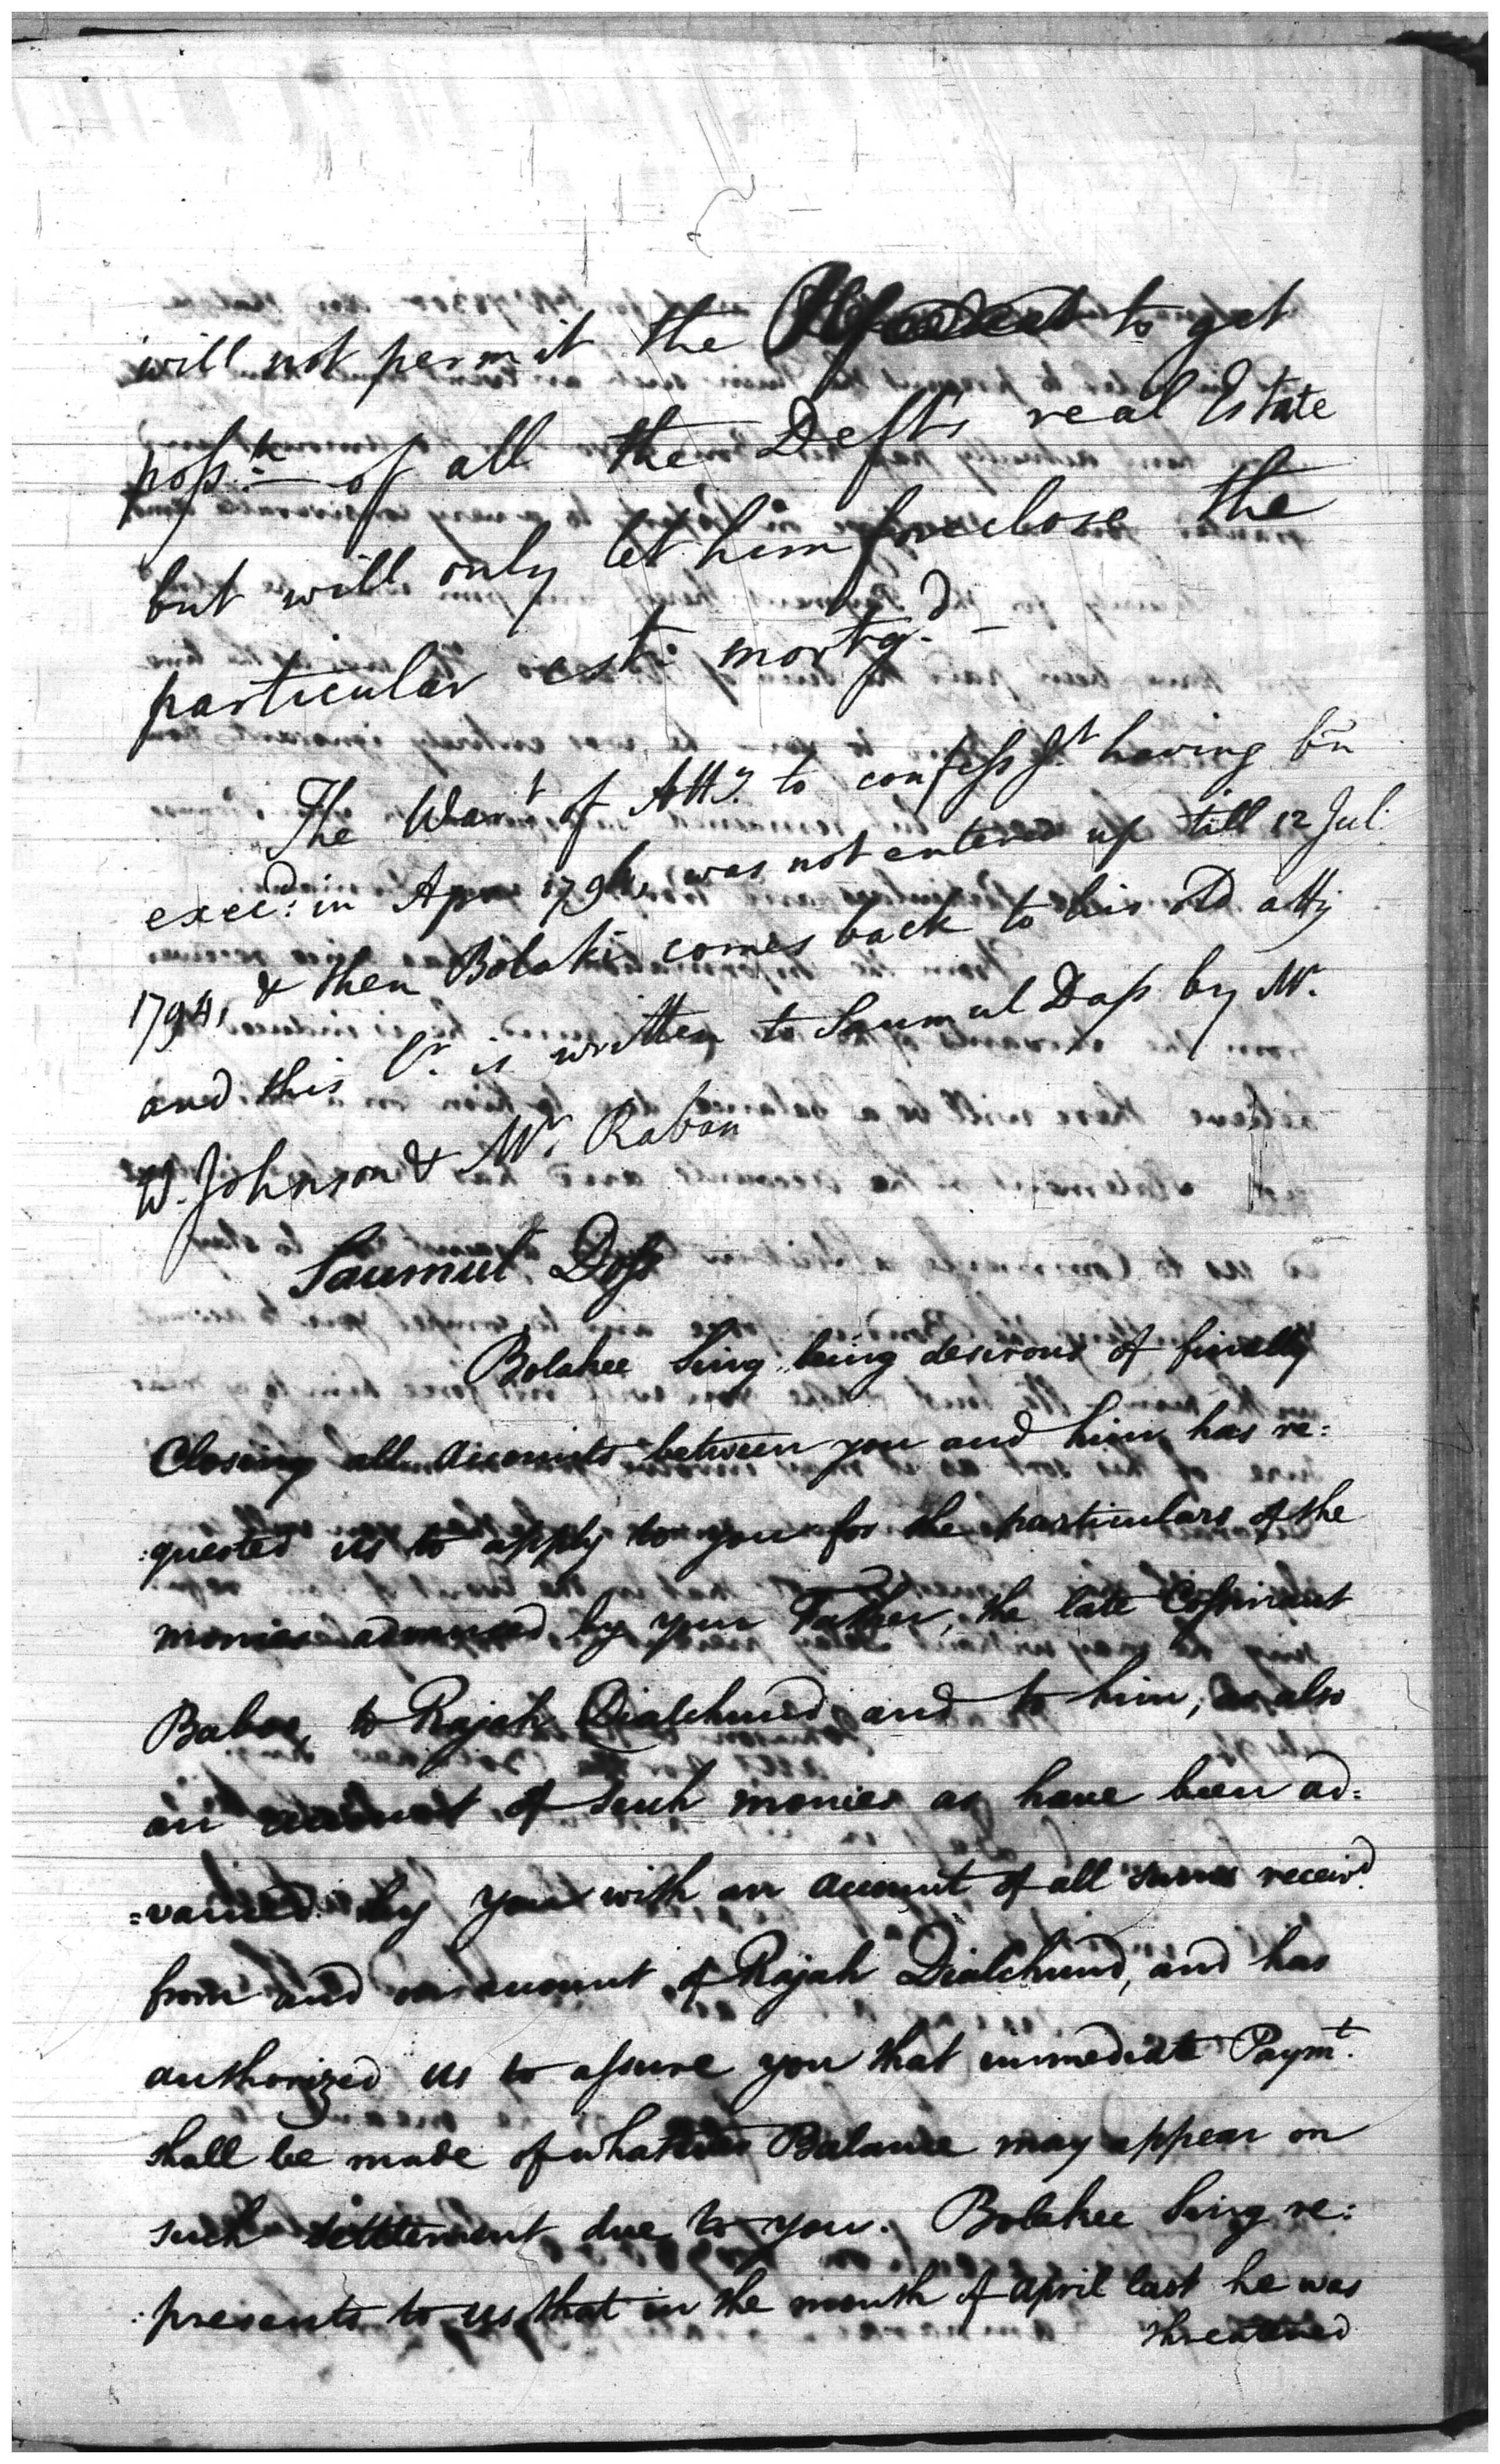 will not permit the to get
poſs:n of all the Defts real Estate
but will only let him foreclose the
particular est: mortg.d —
The Warrt of Atty. to confeſs Jt. having b'n
execd: in Apr 1794, was not entered up till 12 Jul:
1794, & then Bolaki comes back to his old atty
and this lr. is written to Saumul Daſs by Mr.
W. Johnson & Mr. Raban
Saumul Doſs
Bolakee Sing being desirous of finally
Closing all accounts between you and him, has re:
:quested us to apply to you for the particulars of the
monies advanced by your Father, the late
Baboo, to Rajah Dialchund and to him, as also
an account of such monies as have been ad=
=vanced by you with an account of all sums receiv'd
from and on account of Rajah Dialchund, and has
authorized us to aſsure you that immediate Paymt.
shall be made of whatever Balance may appear on
such settlement due to you. Bolakee Sing re:
:presents to us, that in the month of April last he was
threatened